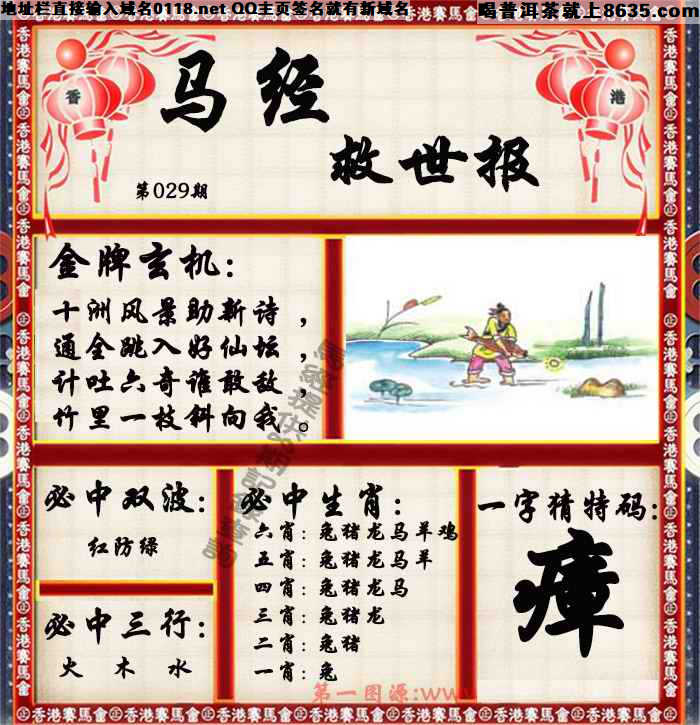 地址栏直接输入域名0118.net QQ主页签名就有新域名
喝普洱茶就上8635.com
香港賽馬會
香 港
马经
救世报
第029期
金牌玄机:
十洲风景助新诗，
通全跳入好仙坛，
计吐六奇谁敢敌，
竹里一枝斜向我。
必中双波:
红防绿
必中三行:
火 木 水
必中生肖:
六肖:兔猪龙马羊鸡
五肖:兔猪龙马羊
四肖:兔猪龙马
三肖:兔猪龙
二肖:兔猪
一肖:兔
一字猜特码:
瘴
第一图源:www